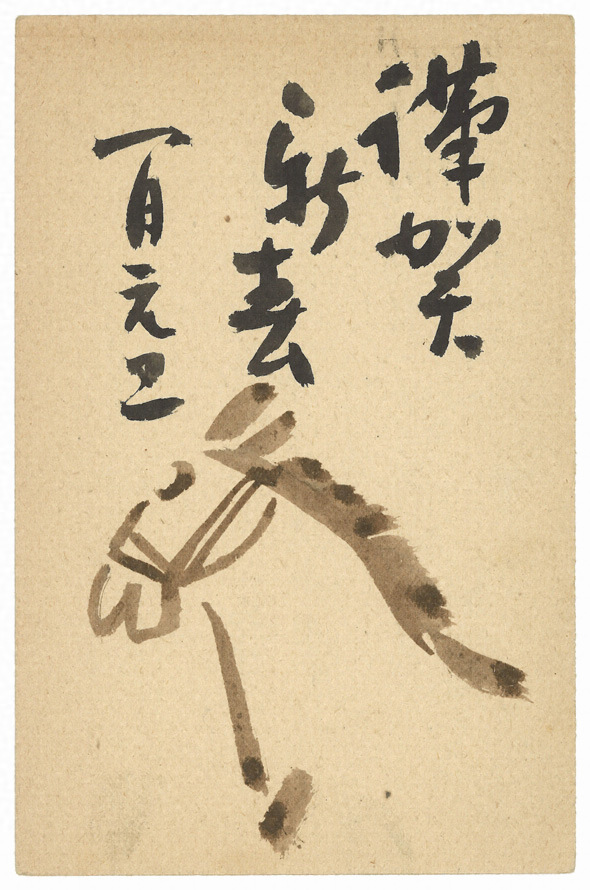 謹賀
新春
一月元旦